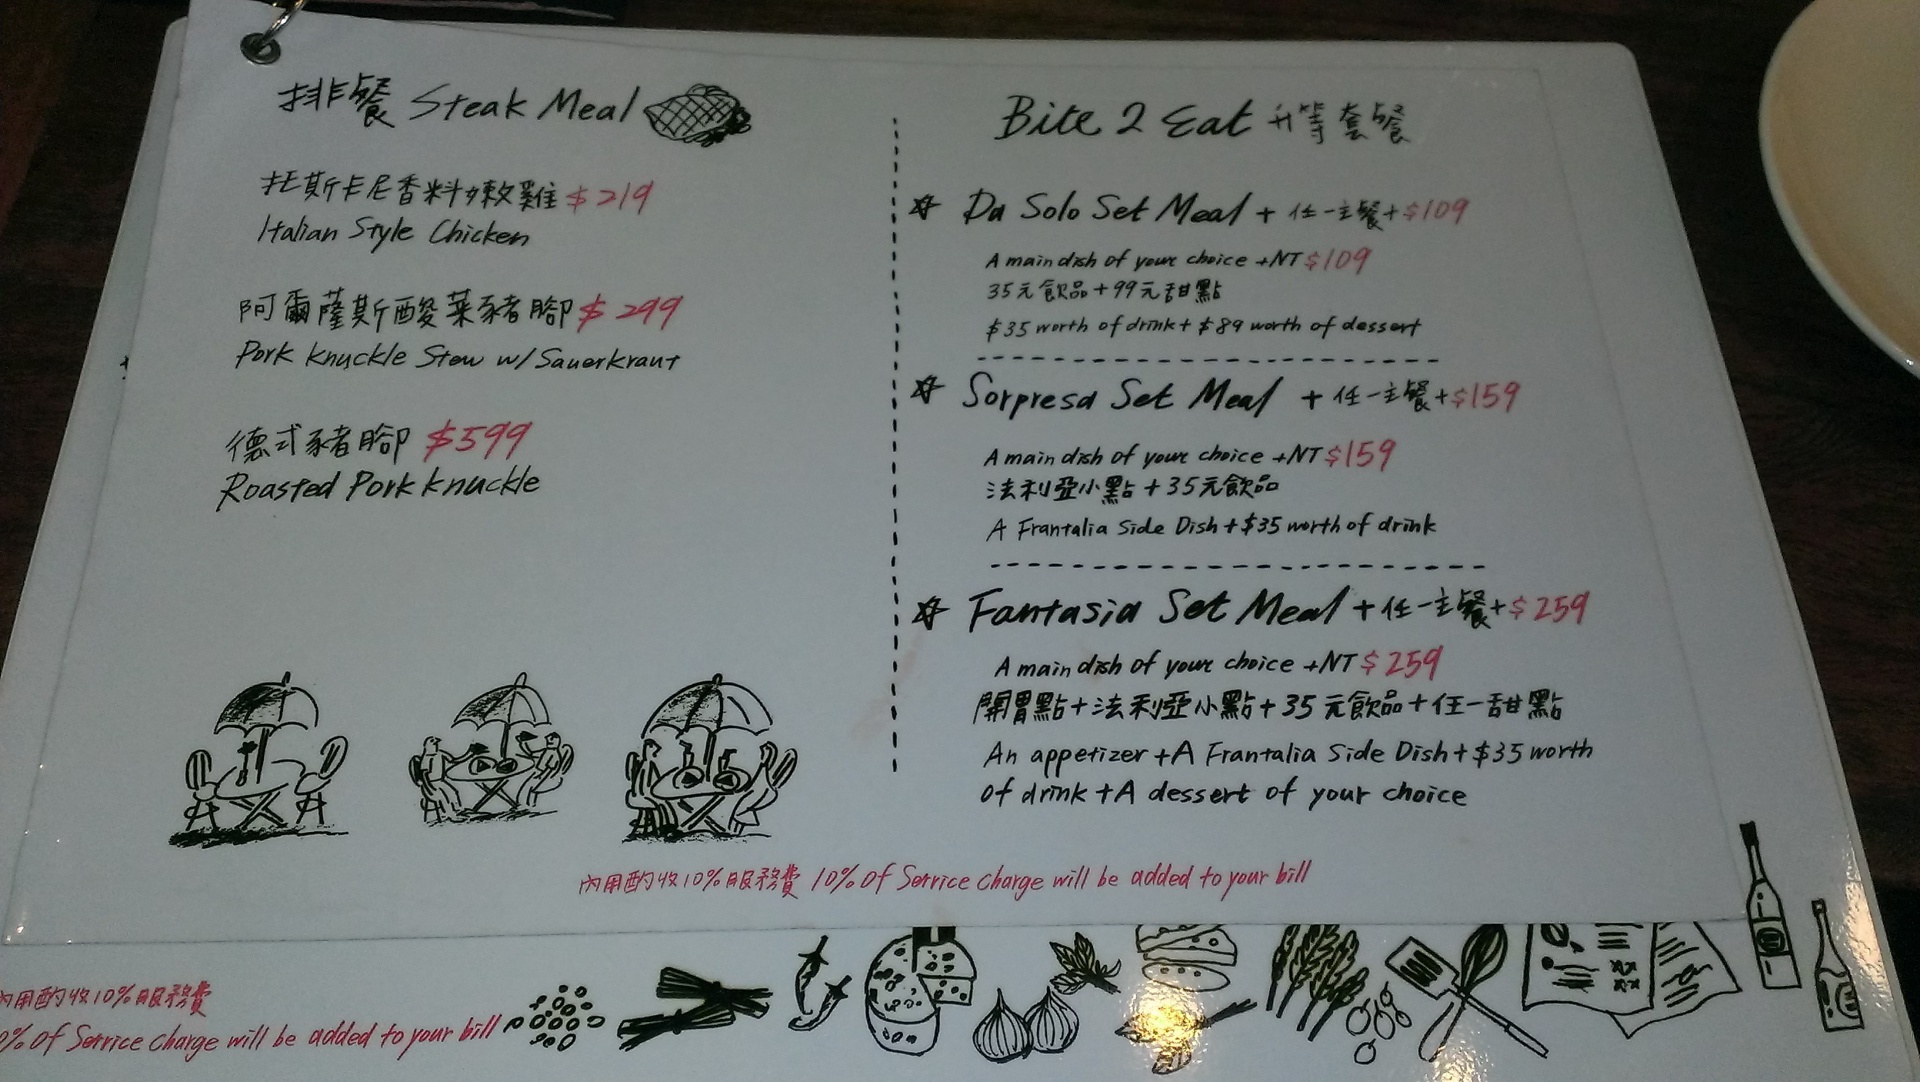 排餐 Steak Meal
托斯卡尼香料嫩雞 $219
Italian Style Chicken
阿爾薩斯酸菜豬腳 $299
Pork Knuckle Stew w/Sauerkraut
德式豬腳 $599
Roasted Pork Knuckle
Bite 2 Eat 升等套餐
Da Solo Set Meal + 任一主餐+$109
A main dish of your choice +NT$109
35元飲品+99元甜點
$35 worth of drink+$89 worth of dessert
Sorpresa Set Meal + 任一主餐+$159
A main dish of your choice +NT$159
法利亞小點+35元飲品
A Frantalia Side Dish+$35 worth of drink
Fantasia Set Meal+任一主餐+$259
A main dish of your choice +NT$259
開胃點+法利亞小點+35元飲品+任一甜點
An appetizer+A Frantalia Side Dish+$35 worth
of drink+A dessert of your choice
內用酌收10%服務費 10% Of Service charge will be added to your bill
內用酌收10%服務費
0% Of Service charge will be added to your bill